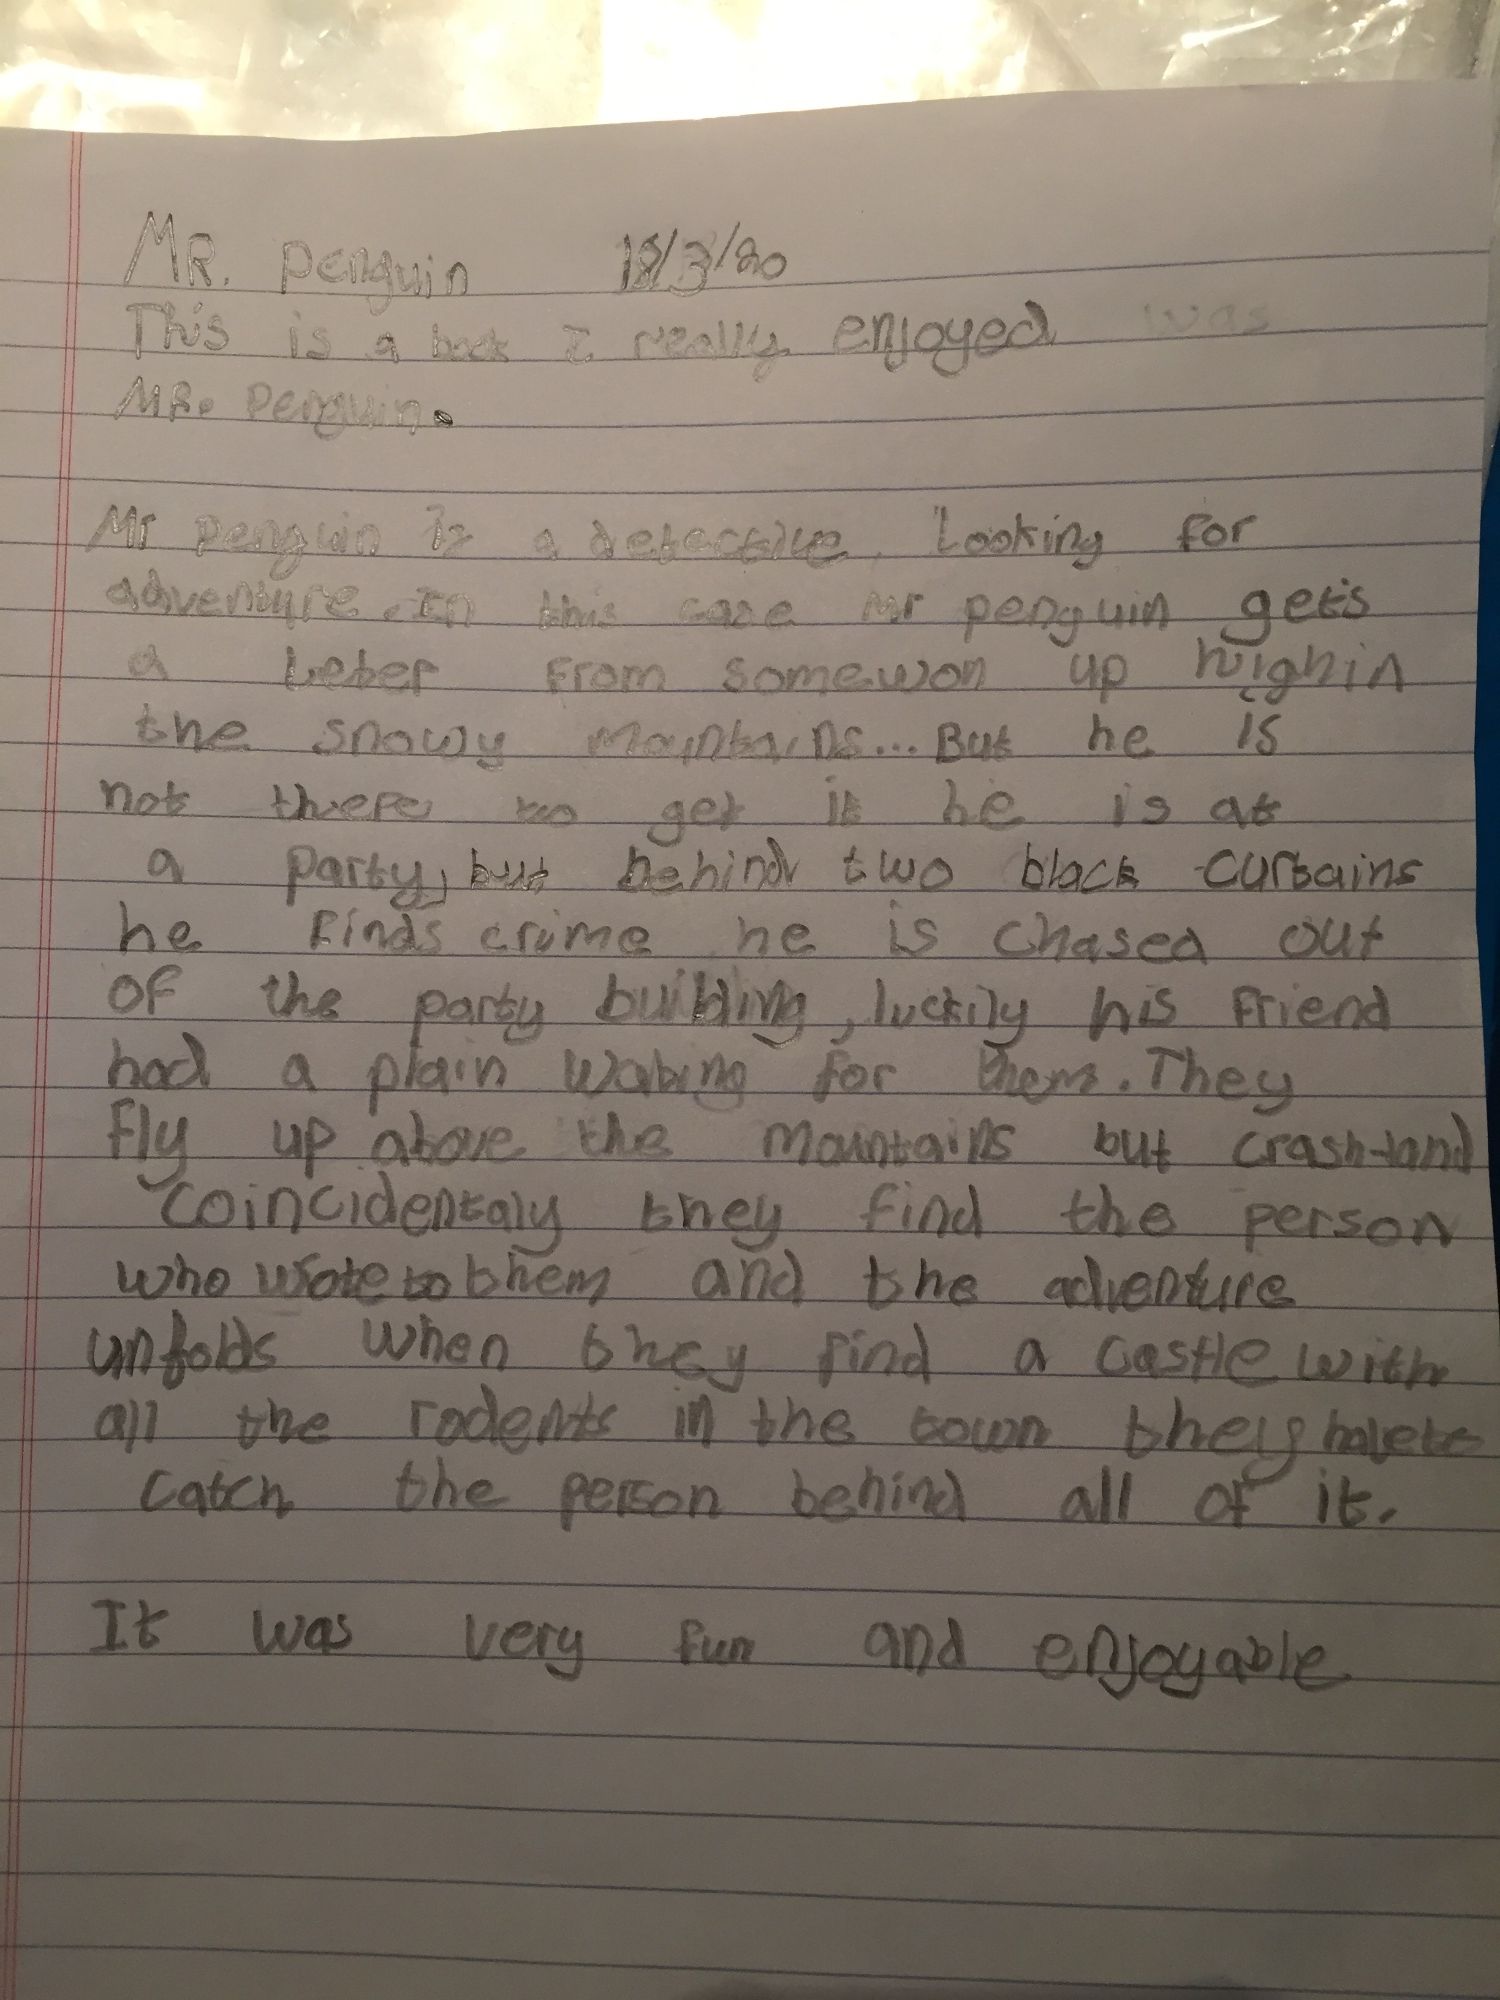 MR. Penguin 18/3/20
This is a book I really enjoyed was
MR. Penguin.
Mr Penguin is a detective. Looking for
adventure. In this case Mr penguin gets
a Letter From somewon up highin
the snowy mountains... But he is
not there to get it he is at
a party, but behind two black curtains
he Finds crime he is chased out
of the party building, luckily his Friend
had a plain wating for them. They
Fly up above the mountains but crash-land
coincidentaly they find the person
who wrote to them and the adventure
unfolds when they find a castle with
all the rodents in the town they have to
catch the person behind all of it.
It was very fun and enjoyable